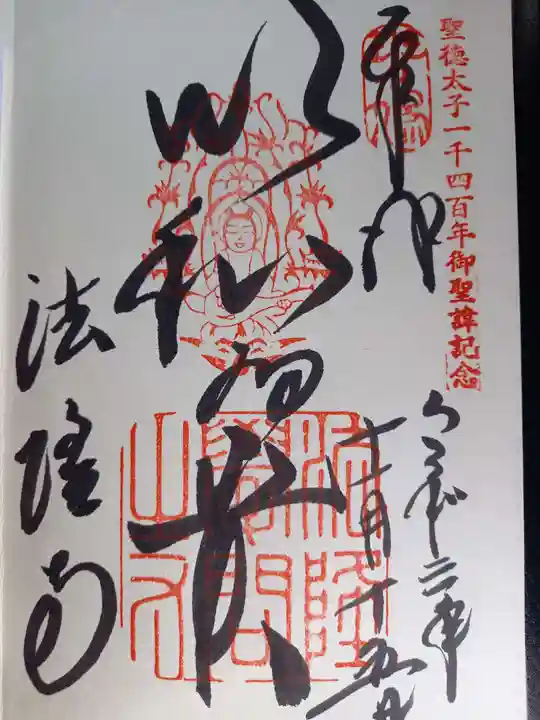 聖徳太子一千四百年御聖諱記念
奉拝
令和二年
十一月十五日
以和為貴
法隆寺